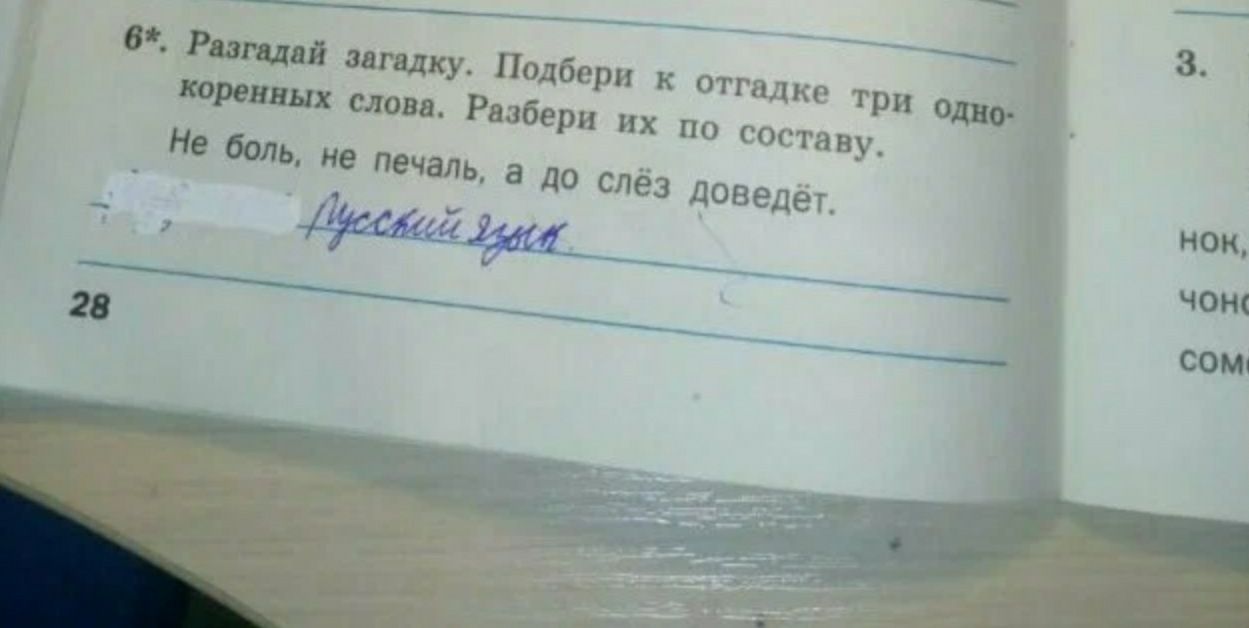 6*. Разгадай загадку. Подбери к отгадке три одно-
коренных слова. Разбери их по составу.
Не боль, не печаль, а до слёз доведёт.
Русский язык.
28
3.
нок,
чоно
сом